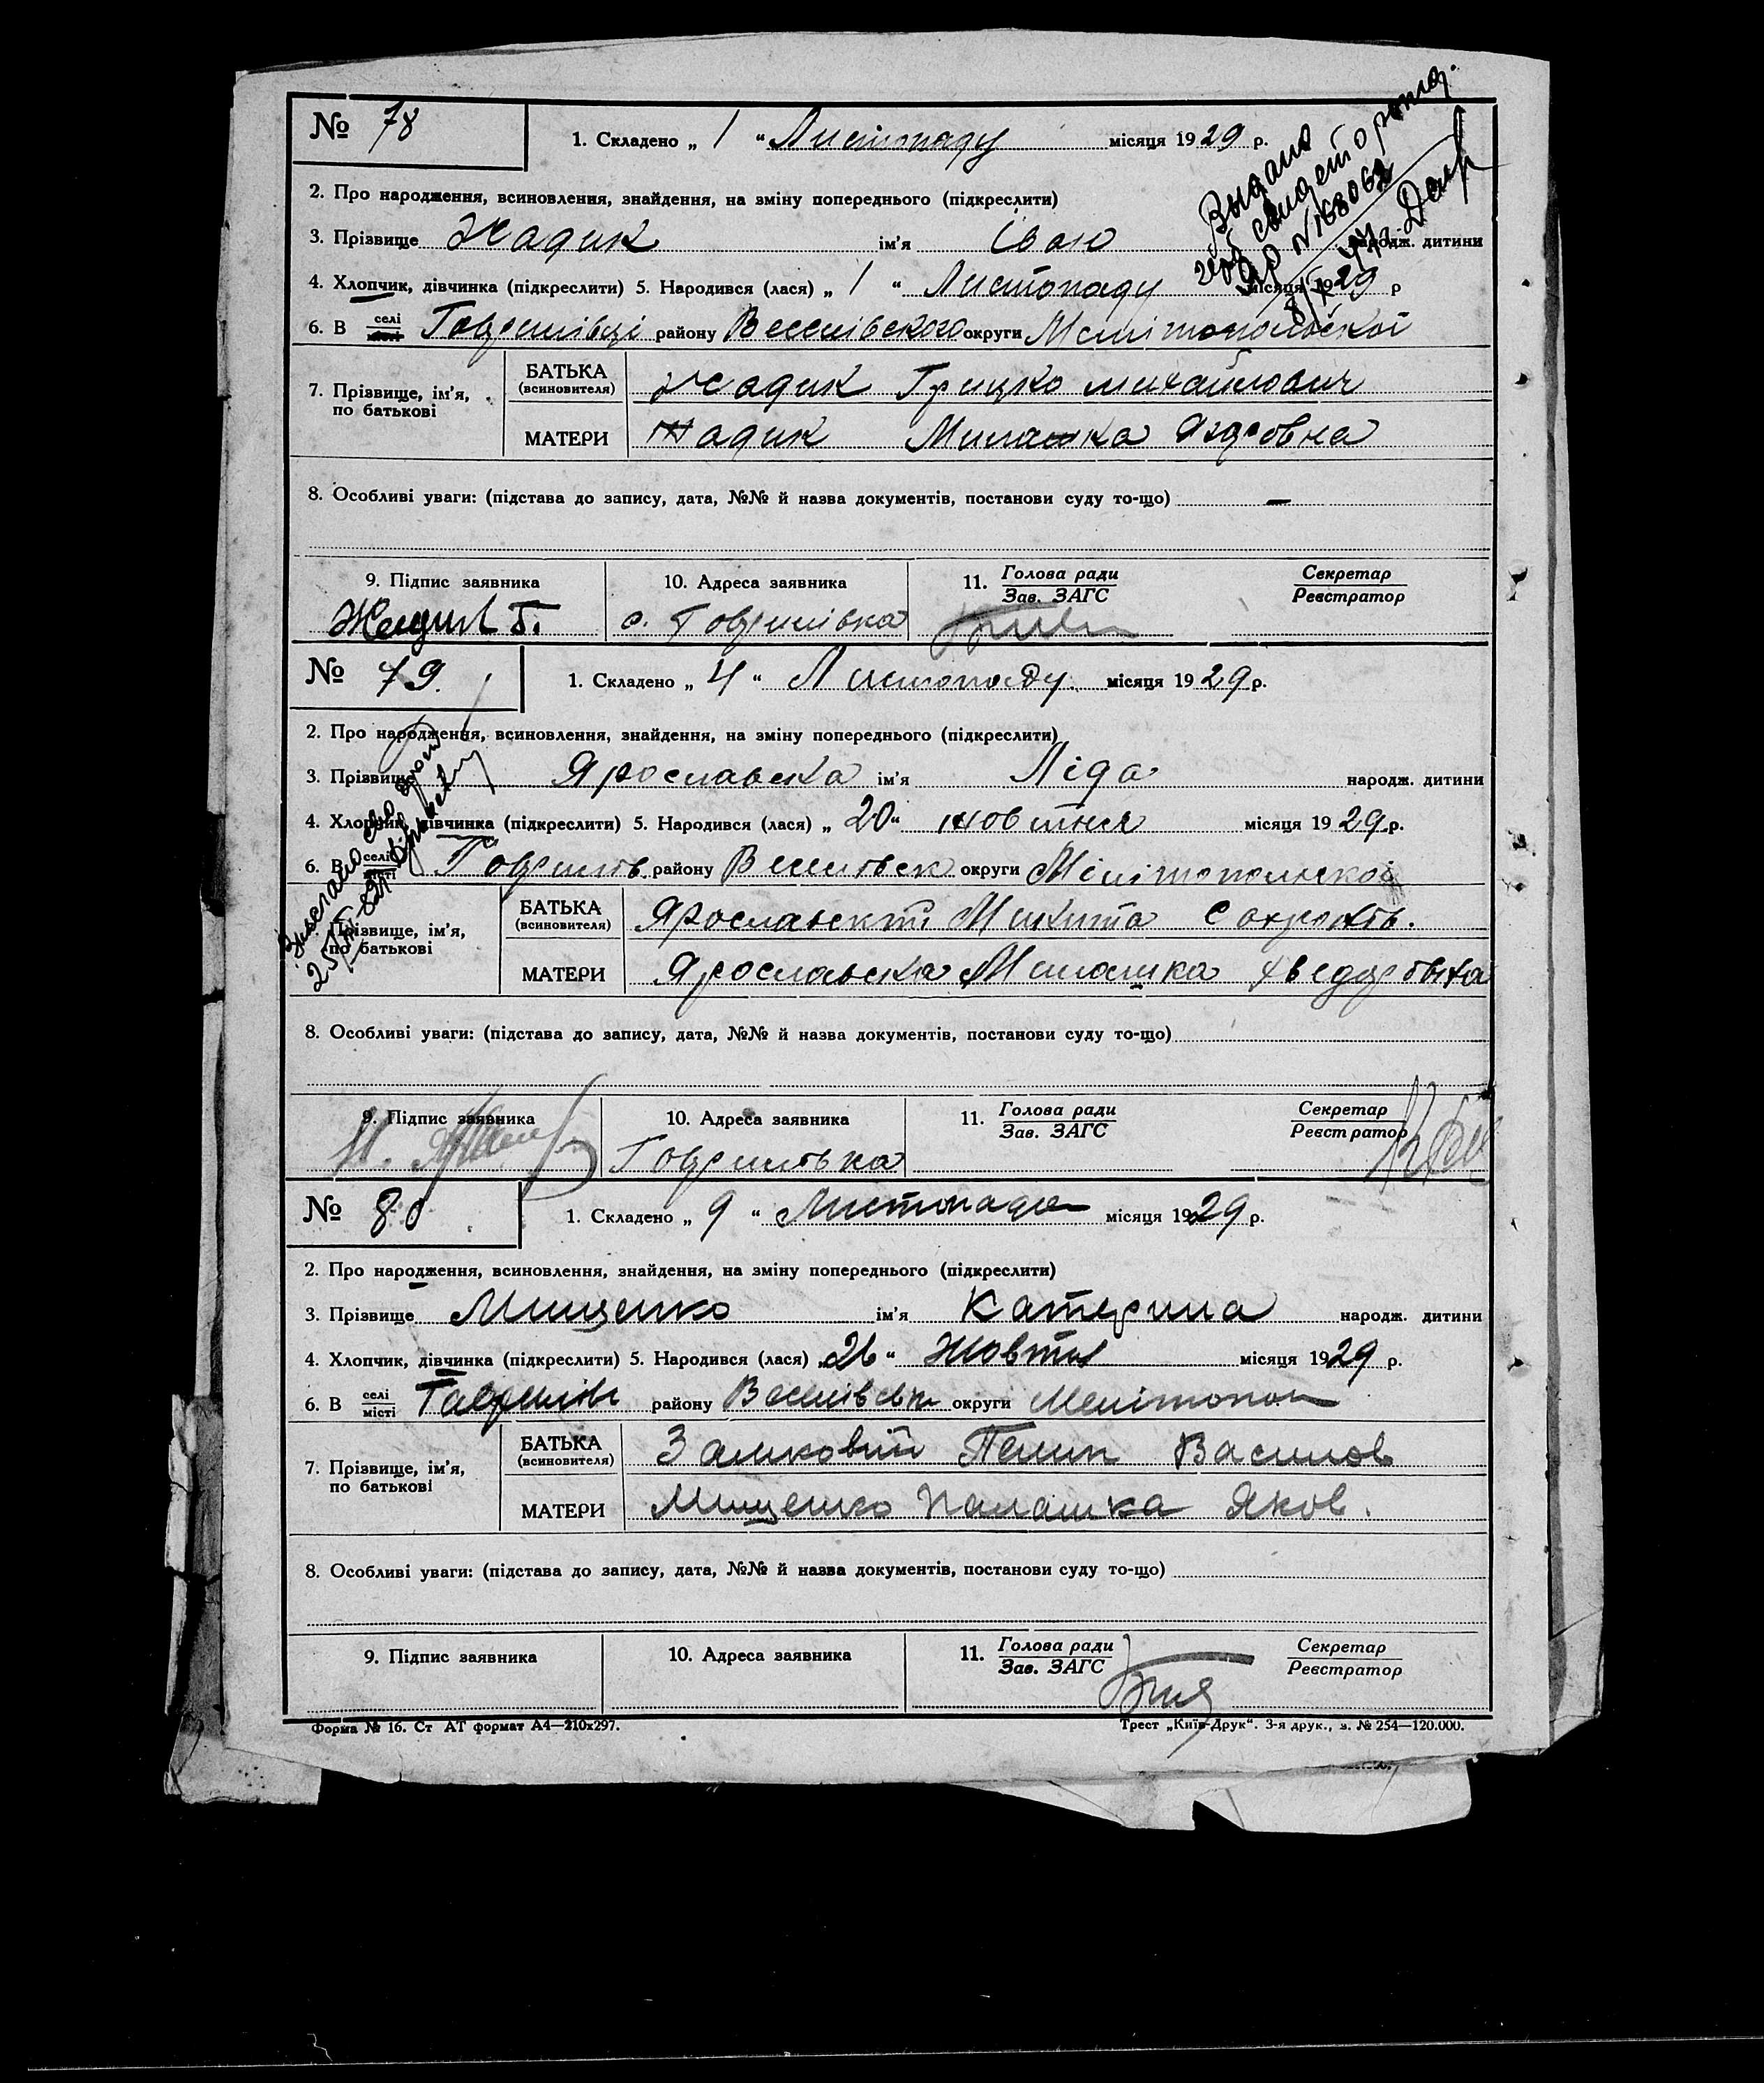 № 78
1. Складено „ 1 “ Листопаду місяця 1929 р.
2. Про народження, всиновлення, знайдення, на зміну попереднього (підкреслити)
3. Прізвище Жадик ім'я Іван народж. дитини
4. Хлопчик, дівчинка (підкреслити) 5. Народився (лася) „ 1 “ Листопаду місяця 1929 р
6. В селі району Веселівского округи Мелітопольскої
7. Прізвище, ім'я, по батькові
БАТЬКА (всиновителя) Жадик Грицко Михайлович
МАТЕРИ Жадик Милашка
8. Особливі уваги: (підстава до запису, дата, №№ й назва документів, постанови суду то-що) —
9. Підпис заявника
10. Адреса заявника
11. Голова ради
Зав. ЗАГС
Секретар
Реєстратор
Г.
с. Гаврилівка
Выдано
№ 168062
№ 79
1. Складено „ 4 “ Листопаду місяця 1929 р.
2. Про народження, всиновлення, знайдення, на зміну попереднього (підкреслити)
3. Прізвище Ярославска ім'я Ліда народж. дитини
4. Хлопчик, дівчинка (підкреслити) 5. Народився (лася) „ 20 “ жовтня місяця 1929 р.
6. В селі
місті Гаврилів району Веселівск округи Мелітопольскої
7. Прізвище, ім'я, по батькові
БАТЬКА (всиновителя) Ярославскій Микита
МАТЕРИ Ярославска Милашка
8. Особливі уваги: (підстава до запису, дата, №№ й назва документів, постанови суду то-що)
9. Підпис заявника
10. Адреса заявника
11. Голова ради
Зав. ЗАГС
Секретар
Реєстратор
Гаврилівка
№ 80
1. Складено „ 9 “ Листопада місяця 1929 р.
2. Про народження, всиновлення, знайдення, на зміну попереднього (підкреслити)
3. Прізвище Мищенко ім'я Катерина народж. дитини
4. Хлопчик, дівчинка (підкреслити) 5. Народився (лася) „ 26 “ Жовтня місяця 1929 р.
6. В селі
місті Гаврилів району Веселівськ округи Мелітопол
7. Прізвище, ім'я, по батькові
БАТЬКА (всиновителя) Замковий Пилип Василов
МАТЕРИ Мищенко Палашка Яков.
8. Особливі уваги: (підстава до запису, дата, №№ й назва документів, постанови суду то-що)
9. Підпис заявника
10. Адреса заявника
11. Голова ради
Зав. ЗАГС
Секретар
Реєстратор
Форма № 16. Ст АТ формат А4—210х297.
Трест „Київ-Друк“. 3-я друк., з. № 254—120.000.